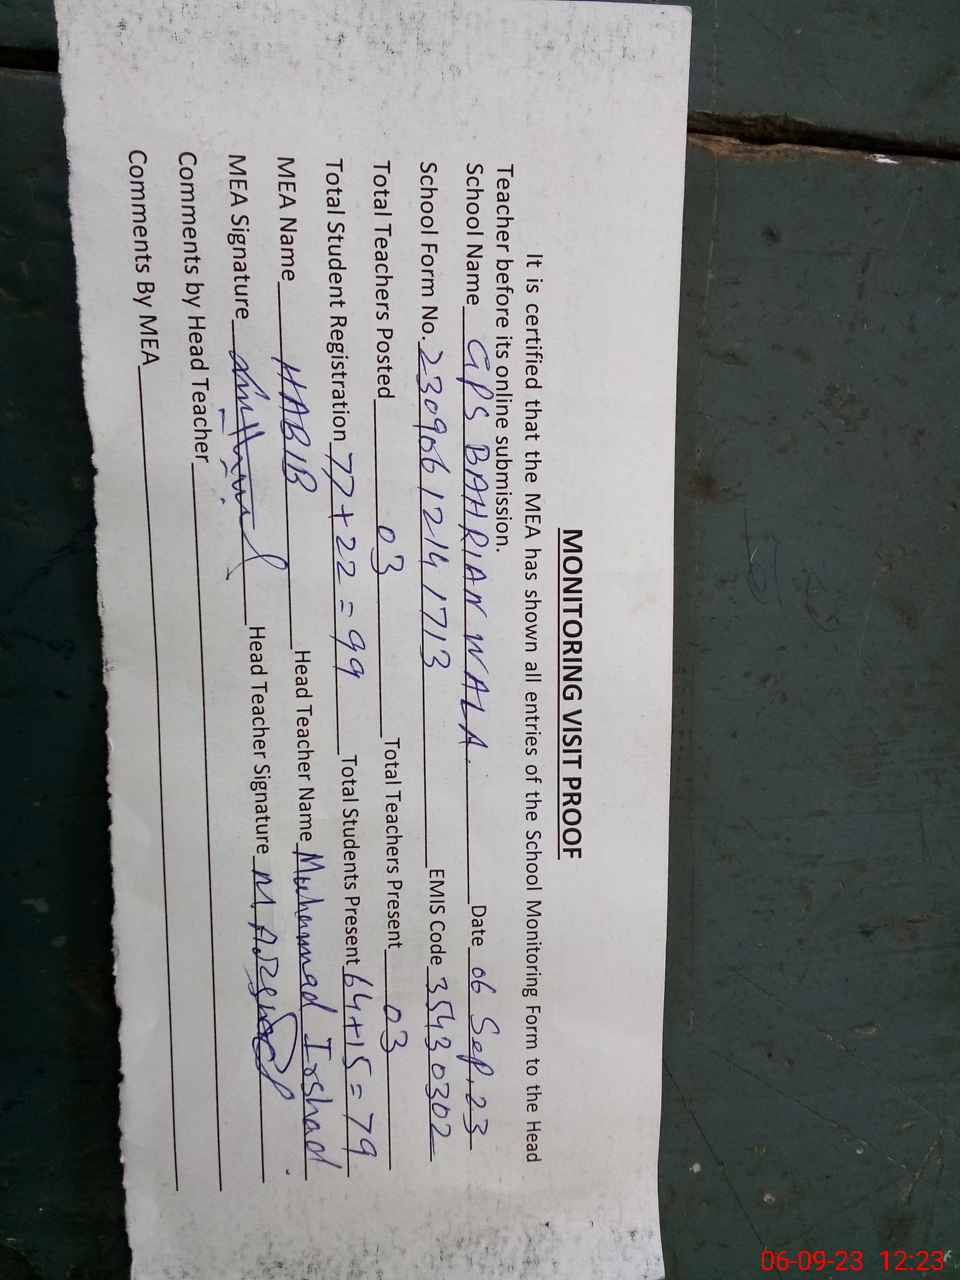 MONITORING VISIT PROOF
It is certified that the MEA has shown all entries of the School Monitoring Form to the Head
Teacher before its online submission.
School Name GPS BAHRIANWALA. Date 06 Sep, 23
School Form No. 23090612141713 EMIS Code 35430302
Total Teachers Posted 03 Total Teachers Present 03
Total Student Registration 77+22=99 Total Students Present 64+15=79
MEA Name HABIB Head Teacher Name Muhammad Irshad
MEA Signature Head Teacher Signature
Comments by Head Teacher
Comments By MEA
06-09-23 12:23